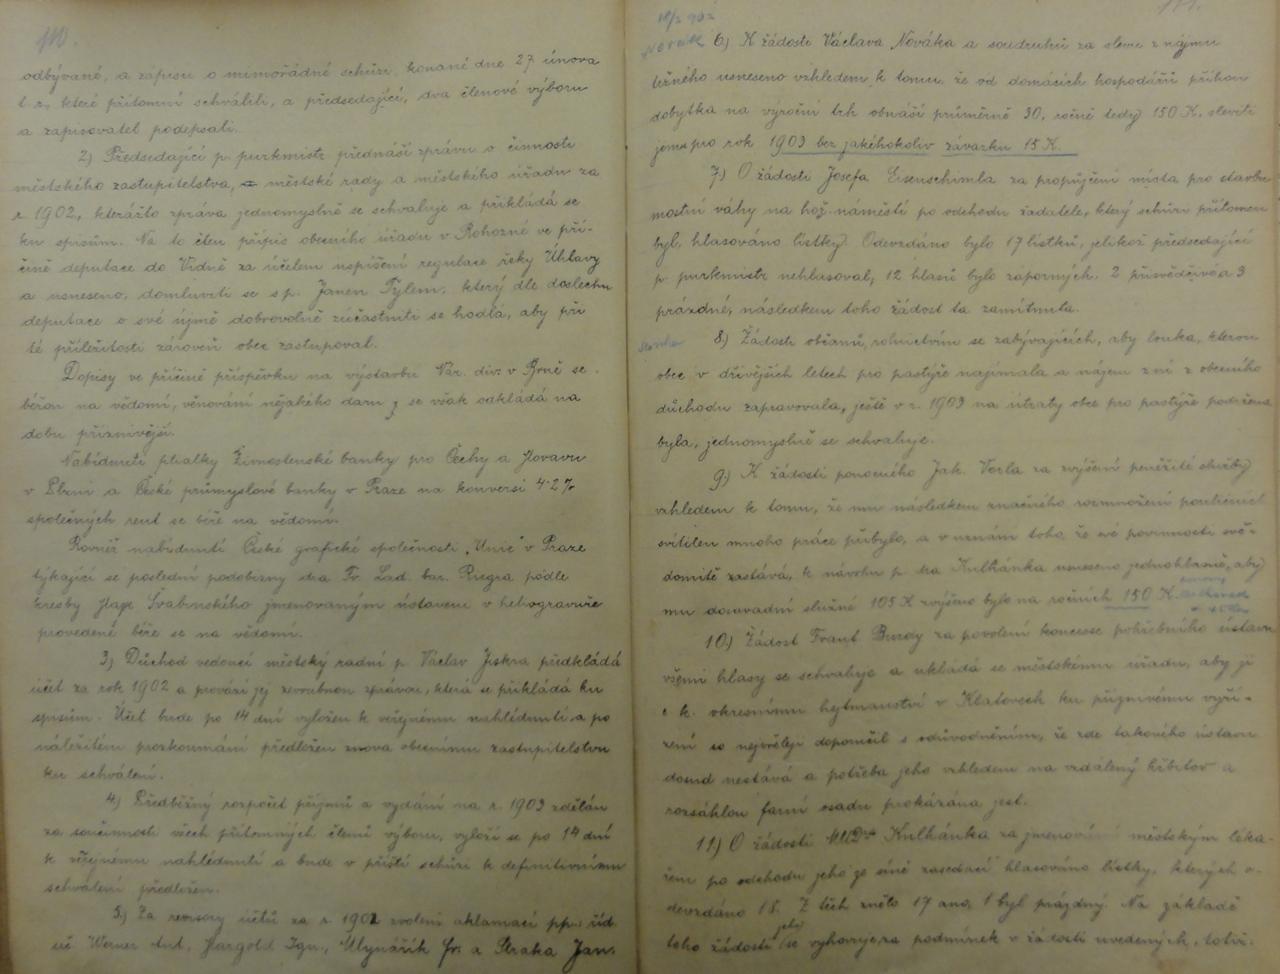 110.
odbývané, a zapisu o mimořádné schůzi, konané dne 27 února
t. r., které přítomní schválili, a předsedající, dva členové výboru
a zapisovatel podepsali.
2) Předsedající p. purkmistr přednáší zprávu o činnosti
městského zastupitelstva, městské rady a městského úřadu za
r. 1902, kterážto zpráva jednomyslně se schvaluje a přikládá se
ku spisům. Na to čten přípis obecního úřadu v Rohozné ve pří-
čině deputace do Vídně za účelem uspíšení regulace řeky Úhlavy
a usneseno, domluviti se s p. Janem Tylem, který dle doslechu
deputace o své újmě dobrovolně zúčastniti se hodlá, aby při
té příležitosti zároveň obec zastupoval.
Dopisy ve příčině příspěvku na výstavbu Nár. div. v Brně se
béřou na vědomí, věnování nějakého daru se však odkládá na
dobu příznivější.
Nabídnutí filialky Živnostenské banky pro Čechy a Moravu
v Plzni a České průmyslové banky v Praze na konversi 4·2%
společných rent se béře na vědomí.
Rovněž nabídnutí České grafické společnosti „Unie" v Praze
týkající se poslední podobizny dra Fr. Lad. bar. Riegra podle
kresby Maxe Švabinského jmenovaným ústavem v heliogravuře
provedené béře se na vědomí.
3) Důchod vedoucí městský radní p. Václav Jiskra předkládá
účet za rok 1902 a provází jej zevrubnou zprávou, která se přikládá ku
spisům. Účet bude po 14 dní vyložen k veřejnému nahlédnutí a po
náležitém prozkoumání předložen znova obecnímu zastupitelstvu
ku schválení.
4) Předběžný rozpočet příjmů a vydání na r. 1903 zdělán
za součinnosti všech přítomných členů výboru, vyloží se po 14 dní
k veřejnému nahlédnutí a bude v příští schůzi k definitivnímu
schválení předložen.
5) Za revisory účtů za r. 1902 zvoleni aklamací pp.: říd.
uč. Werner Ant., Margold Ign., Mlynářík Fr. a Straka Jan.
111.
18/2 902
Novák 6) K žádosti Václava Nováka a soudruhů za slevu z nájmu
tržného usneseno vzhledem k tomu, že od domácích hospodářů příhon
dobytka na výroční trh obnáší průměrně 30, ročně tedy 150 K, sleviti
jemu pro rok 1903 bez jakéhokoliv závazku 15 K.
7) O žádosti Josefa Eisenschimla za propůjčení místa pro stavbu
mostní váhy na hoř. náměstí po odchodu žadatele, který schůzi přítomen
byl, hlasováno lístky. Odevzdáno bylo 17 lístků, jelikož předsedající
p. purkmistr nehlasoval, 12 hlasů bylo záporných, 2 přisvědčivé a 3
prázdné, následkem toho žádost ta zamítnuta.
8) Žádost občanů, rolnictvím se zabývajících, aby louka, kterou
obec v dřívějších letech pro pastýře najímala a nájem z ní z obecního
důchodu zapravovala, ještě v r. 1903 na útraty obce pro pastýře podržena
byla, jednomyslně se schvaluje.
9) K žádosti ponocného Jak. Vorla za zvýšení peněžité služby
vzhledem k tomu, že mu následkem značného rozmnožení pouličních
svítilen mnoho práce přibylo, a v uznání toho, že své povinnosti svě-
domitě zastává, k návrhu p. Kulhánka usneseno jednohlasně, aby
mu dosavadní služné 105 K zvýšeno bylo na ročních 150 K.
10) Žádost Frant. Burdy za povolení koncesse pohřebního ústavu
všemi hlasy se schvaluje a ukládá se městskému úřadu, aby ji
c. k. okresnímu hejtmanství v Klatovech ku příznivému vyří-
zení co nejvřeleji doporučil s odůvodněním, že zde takového ústavu
dosud nestává a potřeba jeho vzhledem na vzdálený hřbitov a
rozsáhlou farní osadu prokázána jest.
11) O žádosti MUDra Kulhánka za jmenování městským léka-
řem po odchodu jeho ze síně zasedací hlasováno lístky, kterých o-
devzdáno 18. Z těch znělo 17 ano, 1 byl prázdný. Na základě
toho žádosti jeho se vyhovuje za podmínek v žádosti uvedených, totiž: